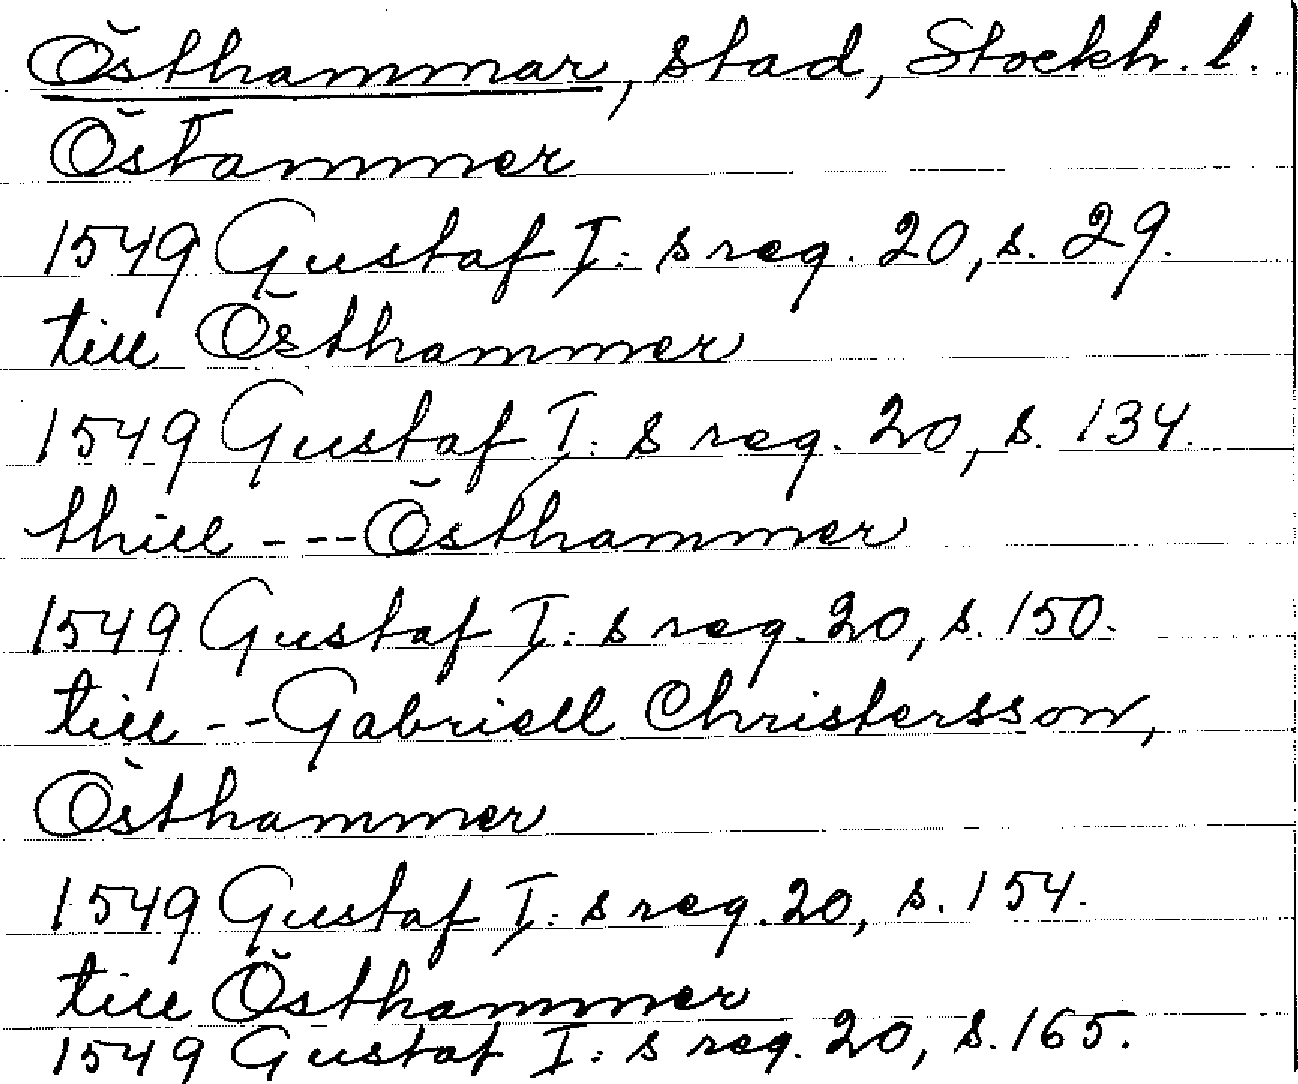 Östhammar, stad, Stockh. l.
Östammer
1549 Gustaf I: s reg. 20, s. 29.
till Östhammer
1549 Gustaf I: s reg. 20, s. 134.
thill --- Östhammer
1549 Gustaf I: s reg. 20, s. 150.
till -- Gabriell Christersson,
Östhammer
1549 Gustaf I: s reg. 20, s. 154.
till Östhammer
1549 Gustaf I: s reg. 20, s. 165.